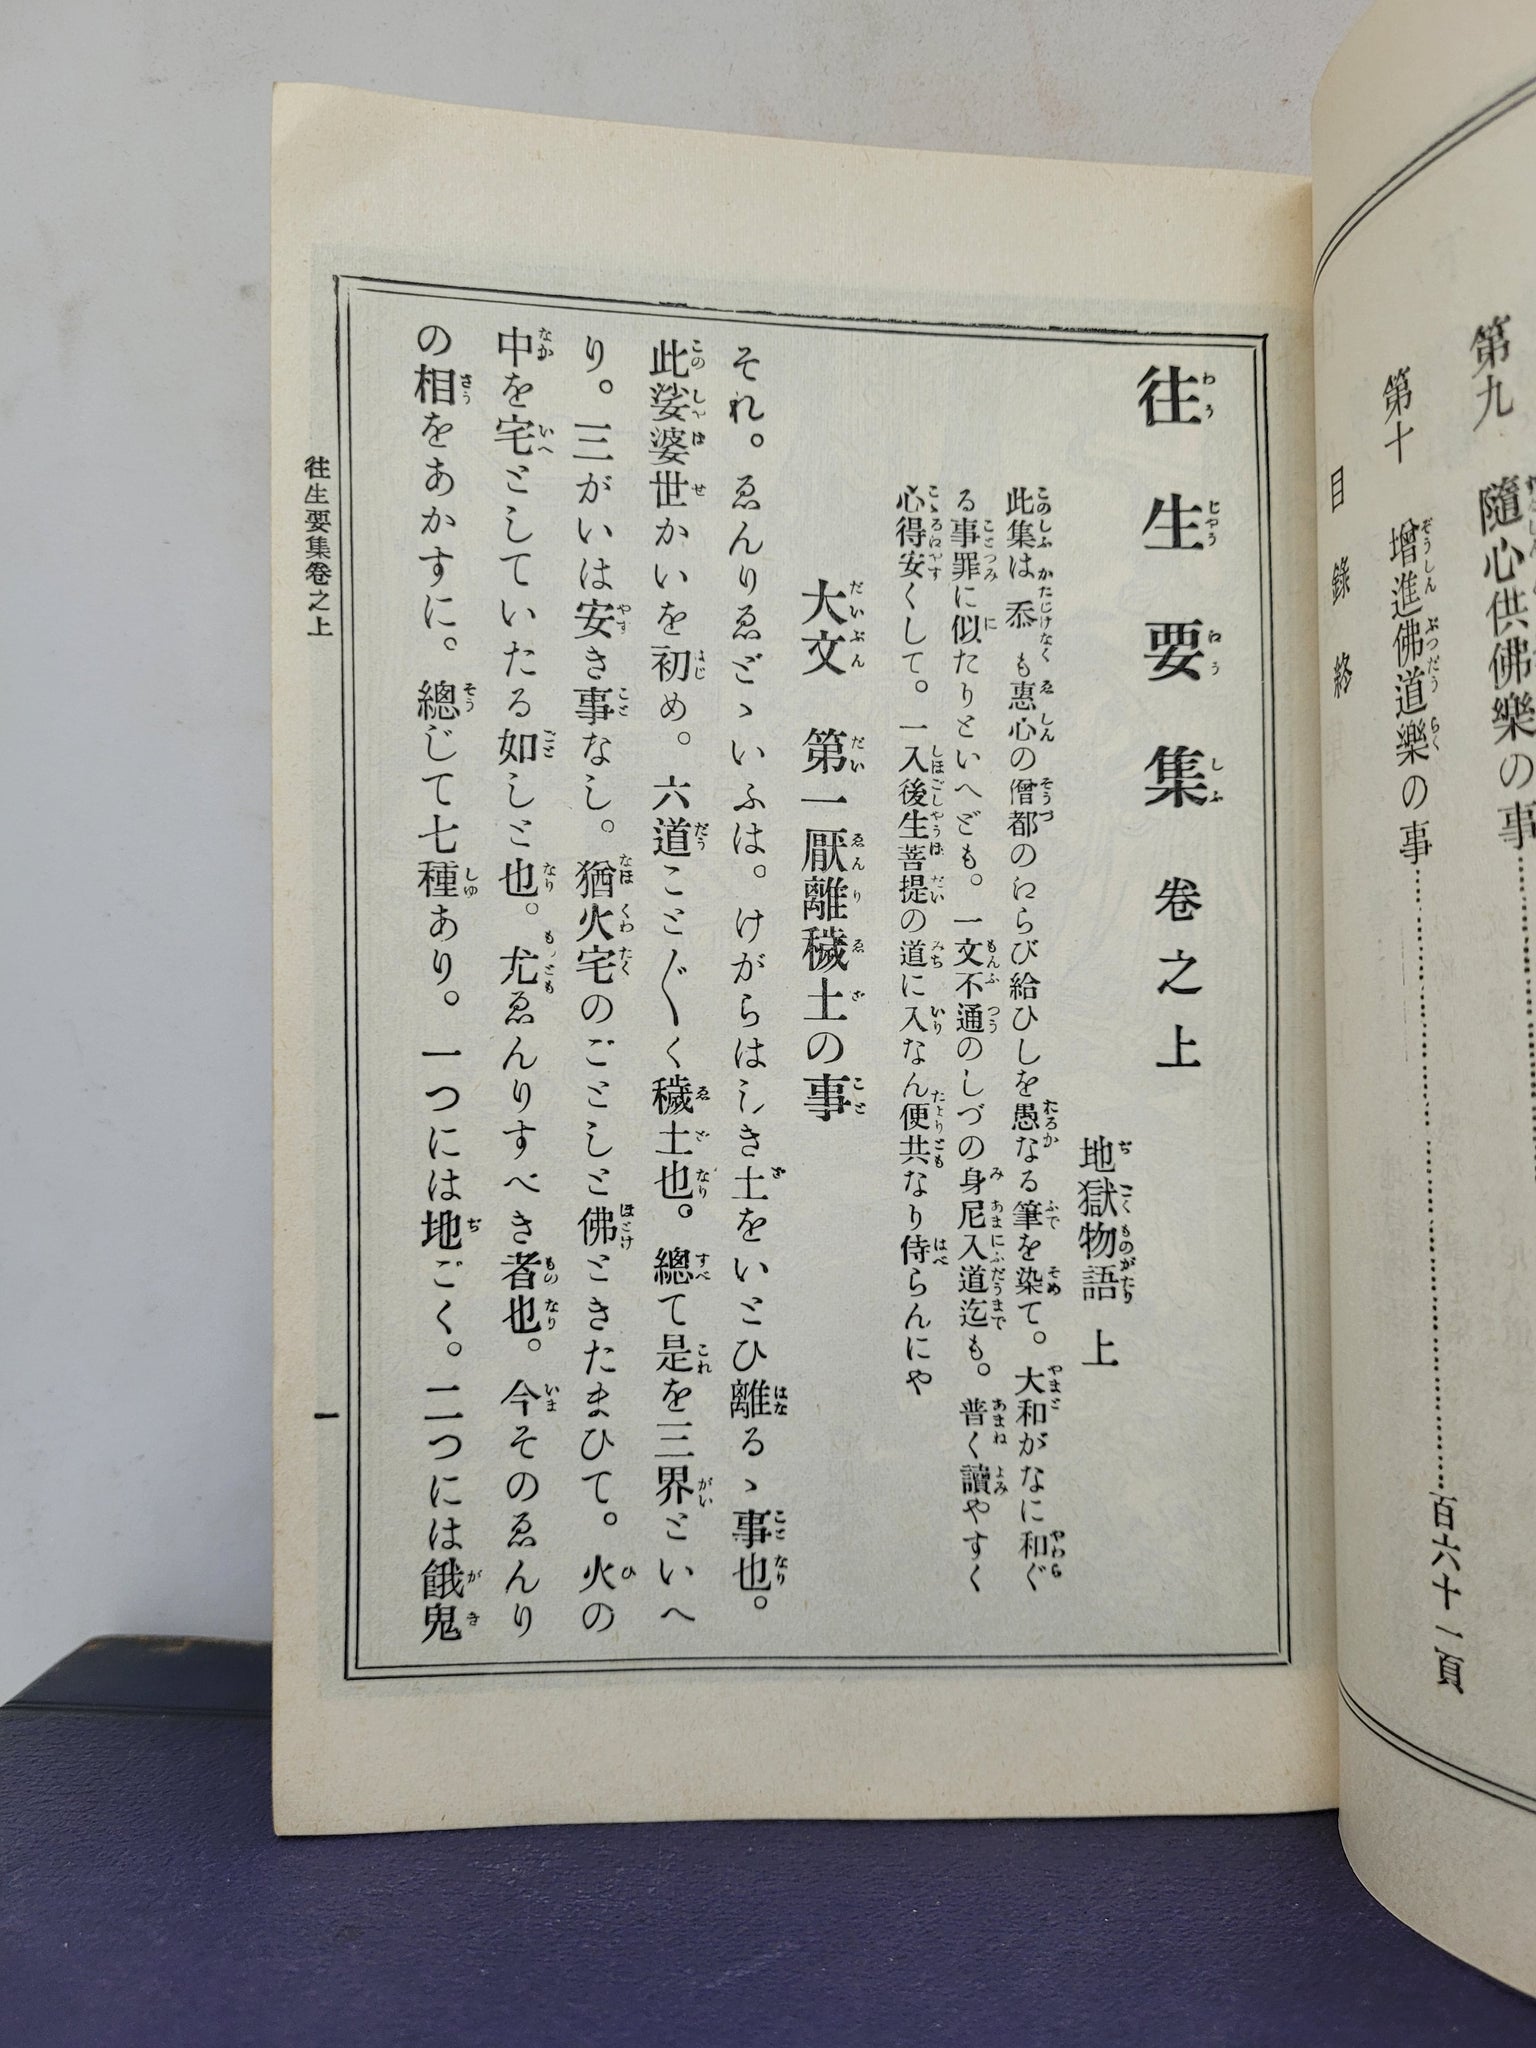 第九　隨心供佛樂の事
第十　增進佛道樂の事……百六十一頁
目錄終
往生要集　卷之上
地獄物語　上
此集は忝も惠心の僧都のゑらび給ひしを愚なる筆を染て。大和がなに和ぐ
る事罪に似たりといへども。一文不通のしづの身尼入道迄も。普く讀やすく
心得安くして。一入後生菩提の道に入なん便共なり侍らんにや
大文　第一厭離穢土の事
それ。ゑんりゑどゝいふは。けがらはしき土をいとひ離るゝ事也。
此娑婆世かいを初め。六道こと〴〵く穢土也。總て是を三界といへ
り。三がいは安き事なし。猶火宅のごとしと佛ときたまひて。火の
中を宅としていたる如しと也。尤ゑんりすべき者也。今そのゑんり
の相をあかすに。總じて七種あり。一つには地ごく。二つには餓鬼
往生要集卷之上
一